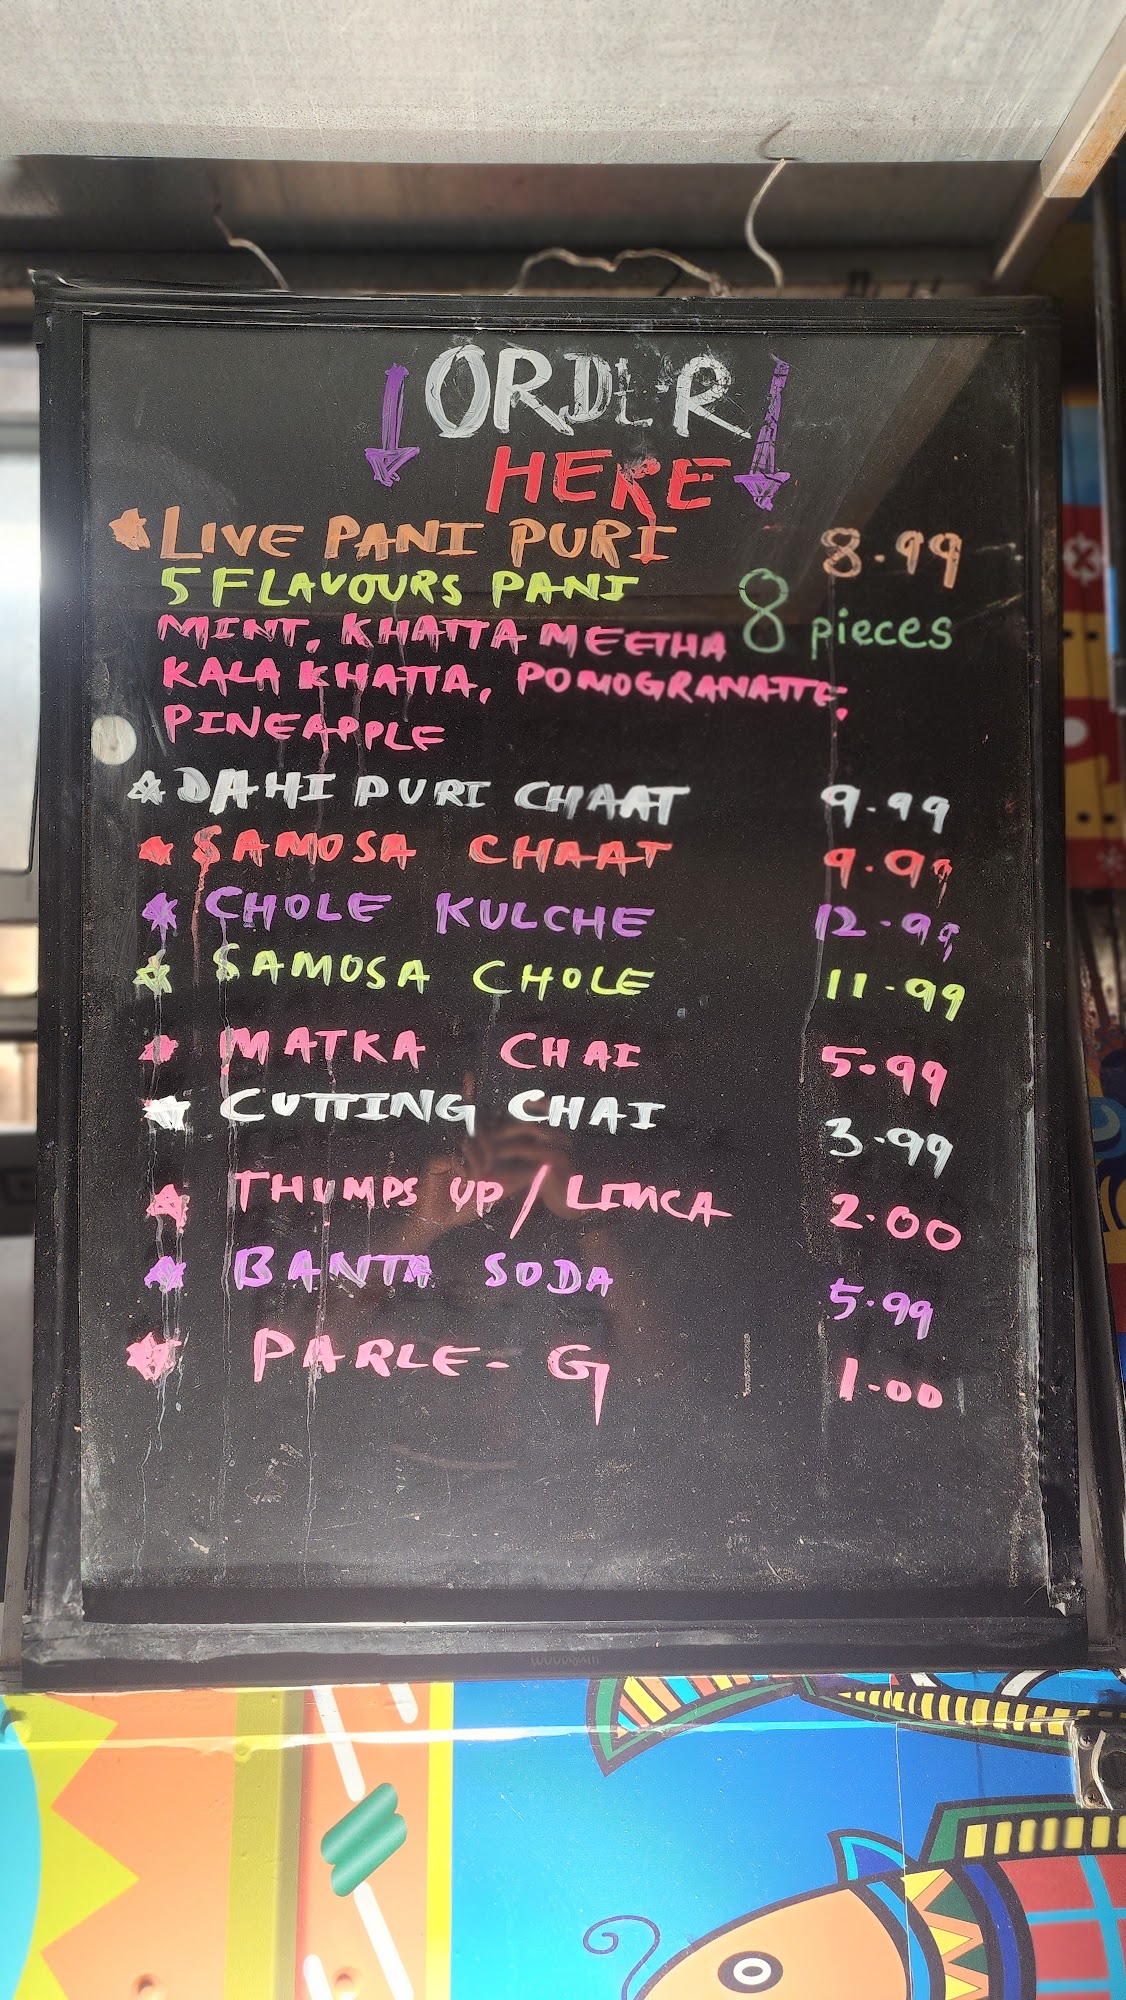 ORDER
HERE
LIVE PANI PURI 8.99
5 FLAVOURS PANI
MINT, KHATTA MEETHA 8 pieces
KALA KHATTA, POMOGRANATTE,
PINEAPPLE
DAHI PURI CHAAT 9.99
SAMOSA CHAAT 9.99
CHOLE KULCHE 12.99
SAMOSA CHOLE 11.99
MATKA CHAI 5.99
CUTTING CHAI 3.99
THUMPS UP / LIMCA 2.00
BANTA SODA 5.99
PARLE-G 1.00